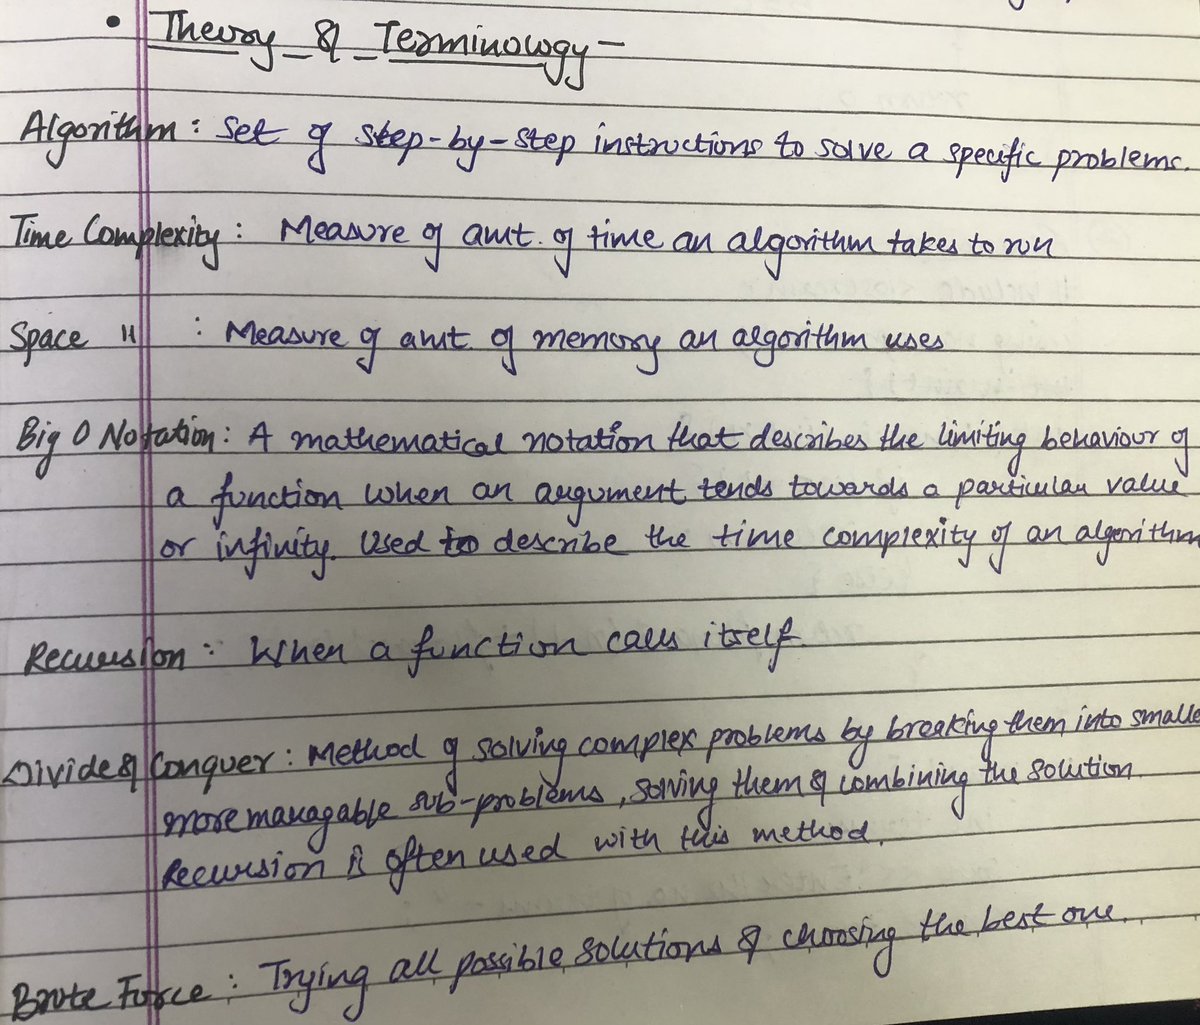 • Theory & Terminology -
Algorithm : Set of step-by-step instructions to solve a specific problems.
Time Complexity : Measure of amt. of time an algorithm takes to run
Space " : Measure of amt. of memory an algorithm uses
Big O Notation : A mathematical notation that describes the limiting behaviour of
a function when an argument tends towards a particular value
or infinity. Used to describe the time complexity of an algorithm
Recursion : When a function calls itself.
Divide & Conquer : Method of solving complex problems by breaking them into smaller
more managable sub-problems, solving them & combining the solution.
Recursion is often used with this method.
Brute Force : Trying all possible solutions & choosing the best one.